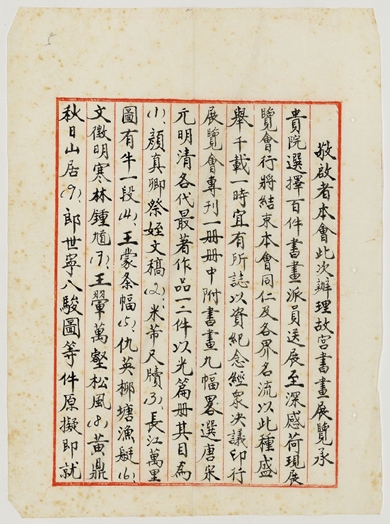 敬啟者本會此次辦理故宮書畫展覽承
貴院選擇百件書畫派員送展至深感荷現展
覽會行將結束本會同仁及各界名流以此種盛
舉千載一時宜有所誌以資紀念經眾決議印行
展覽會專刊一冊冊中附書畫九幅畧選唐宋
元明清各代最著作品一二件以光篇冊其目為
(1)顏真卿祭姪文稿(2)米芾尺牘(3)長江萬里
圖有牛一段(4)王蒙条幅(5)仇英柳塘漁艇(6)
文徵明寒林鍾馗(7)王翬萬壑松風(8)黃鼎
秋日山居(9)郎世寧八駿圖等件原擬即就
5